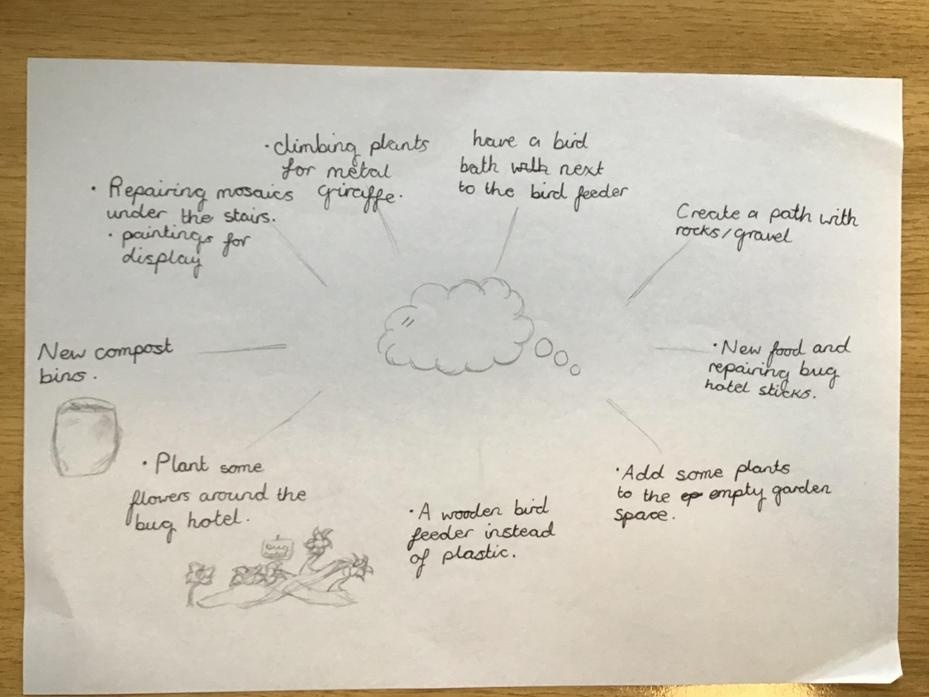 · climbing plants
for metal
giraffe.
have a bird
bath with next
to the bird feeder
· Repairing mosaics
under the stairs.
· paintings for
display
Create a path with
rocks/gravel
New compost
bins.
· New food and
repairing bug
hotel sticks.
· Plant some
flowers around the
bug hotel.
· A wooden bird
feeder instead
of plastic.
· Add some plants
to the ep empty garden
space.
bug